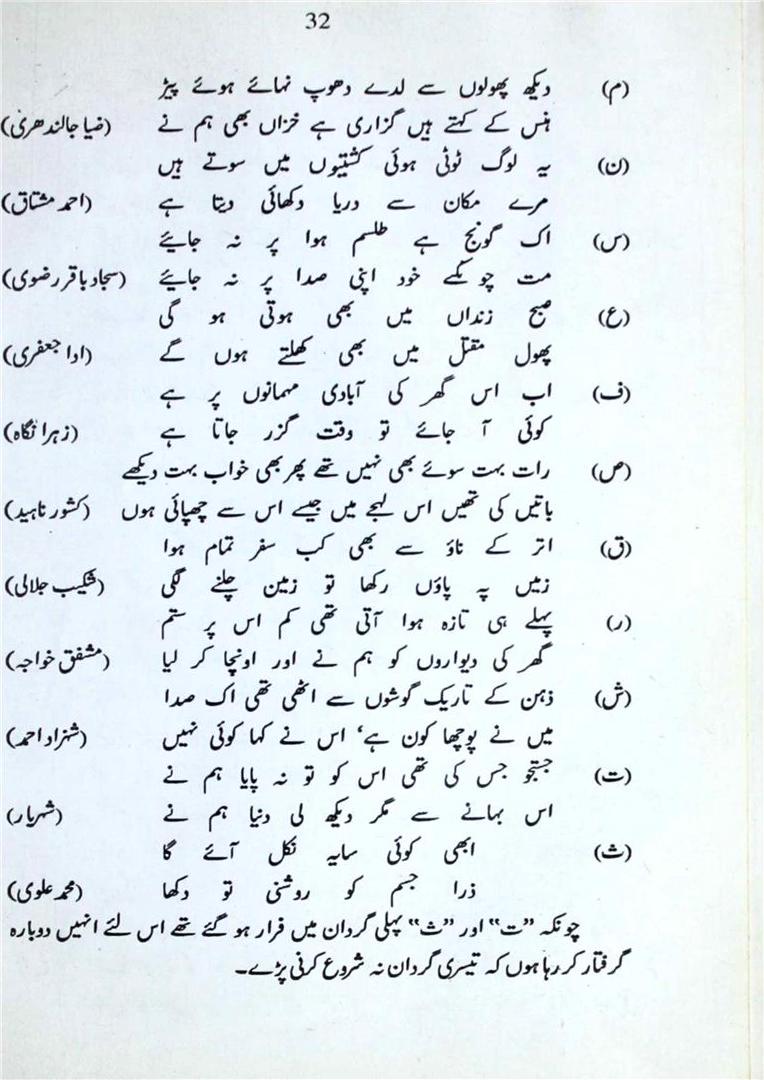 32
(م) دیکھ پھولوں سے لدے دھوپ نہائے ہوئے پیڑ
ہنس کے کہتے ہیں گزاری ہے خزاں بھی ہم نے (ضیا جالندھری)
(ن) یہ لوگ ٹوٹی ہوئی کشتیوں میں سوتے ہیں
مرے مکان سے دریا دکھائی دیتا ہے (احمد مشتاق)
(س) اک گونج ہے طلسم ہوا پر نہ جایئے
مت چونکیے خود اپنی صدا پر نہ جایئے (سجاد باقر رضوی)
(ع) صبح زنداں میں بھی ہوتی ہو گی
پھول مقتل میں بھی کھلتے ہوں گے (ادا جعفری)
(ف) اب اس گھر کی آبادی مہمانوں پر ہے
کوئی آ جائے تو وقت گزر جاتا ہے (زہرا نگاہ)
(ص) رات بہت سوئے بھی نہیں تھے پھر بھی خواب بہت دیکھے
باتیں کی تھیں اس لہجے میں جیسے اس سے چھپائی ہوں (کشور ناہید)
(ق) اتر کے ناؤ سے بھی کب سفر تمام ہوا
زمیں پہ پاؤں رکھا تو زمین چلنے لگی (شکیب جلالی)
(ر) پہلے ہی تازہ ہوا آتی تھی کم اس پر ستم
گھر کی دیواروں کو ہم نے اور اونچا کر لیا (مشفق خواجہ)
(ش) ذہن کے تاریک گوشوں سے اٹھی تھی اک صدا
میں نے پوچھا کون ہے، اس نے کہا کوئی نہیں (شہزاد احمد)
(ت) جستجو جس کی تھی اس کو تو نہ پایا ہم نے
اس بہانے سے مگر دیکھ لی دنیا ہم نے (شہریار)
(ث) ابھی کوئی سایہ نکل آئے گا
ذرا جسم کو روشنی تو دکھا (محمد علوی)
چونکہ "ت" اور "ث" پہلی گردان میں فرار ہو گئے تھے اس لئے انہیں دوبارہ
گرفتار کر رہا ہوں کہ تیسری گردان نہ شروع کرنی پڑے۔